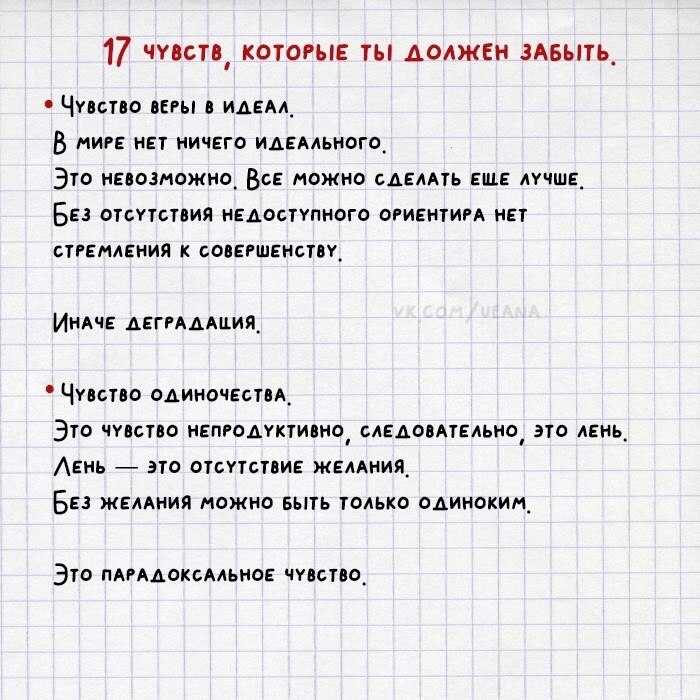 17 чувств, которые ты должен забыть.
• Чувство веры в идеал.
В мире нет ничего идеального.
Это невозможно. Все можно сделать еще лучше.
Без отсутствия недоступного ориентира нет
стремления к совершенству.
vk.com/ueana
Иначе деградация.
• Чувство одиночества.
Это чувство непродуктивно, следовательно, это лень.
Лень — это отсутствие желания.
Без желания можно быть только одиноким.
Это парадоксальное чувство.